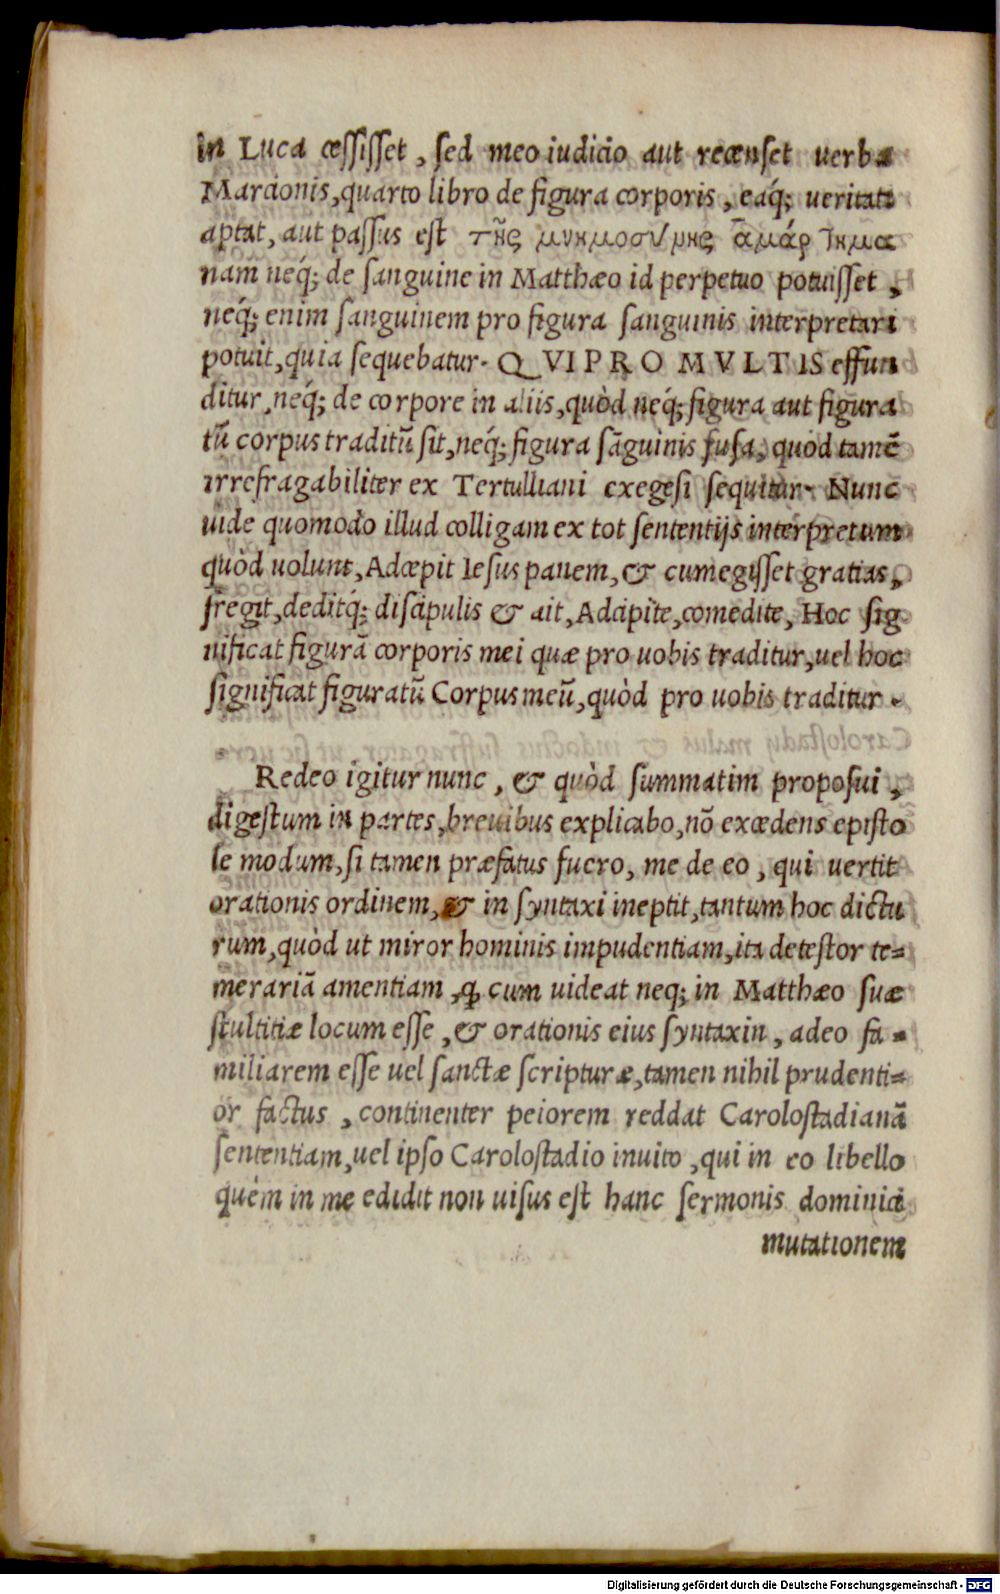 in Luca cessisset, sed meo iudicio aut recenset verba
Marcionis, quarto libro de figura corporis, eaq́; ueritati
aptat, aut passus est τῆς μνημοσύνης ἁμάρτημα
nam neq́; de sanguine in Matthæo id perpetuo potuisset,
neq́; enim sanguinem pro figura sanguinis interpretari
potuit, quia sequebatur. QVI PRO MVLTIS effun
ditur, neq́; de corpore in aliis, quòd neq́; figura aut figura
tũ corpus traditũ sit, neq́; figura sãguinis fusa, quòd tamẽ
irrefragabiliter ex Tertulliani exegesi sequitur. Nunc
uide quomodo illud colligam ex tot sententijs interpretum
quòd uolunt, Accepit Iesus panem, & cum egisset gratias,
fregit, deditq́; discipulis & ait, Accipite, comedite, Hoc sig
nificat figurã corporis mei quæ pro uobis traditur, uel hoc
significat figuratũ Corpus meũ, quòd pro uobis traditur.
Redeo igitur nunc, & quòd summatim proposui,
digestum in partes, breuibus explicabo, nõ excedens episto
le modum, si tamen præfatus fuero, me de eo, qui uertit
orationis ordinem, & in syntaxi ineptit, tantum hoc dictu
rum, quòd ut miror hominis impudentiam, ita detestor te=
merariã amentiam, ꝙ cum uideat neq; in Matthæo suæ
stultitiæ locum esse, & orationis eius syntaxin, adeo fa=
miliarem esse uel sanctæ scripturæ, tamen nihil prudenti=
or factus, continenter peiorem reddat Carolostadianã
sententiam, uel ipso Carolostadio inuito, qui in eo libello
quem in me edidit non uisus est hanc sermonis dominici
mutationem
Digitalisierung gefördert durch die Deutsche Forschungsgemeinschaft - DFG